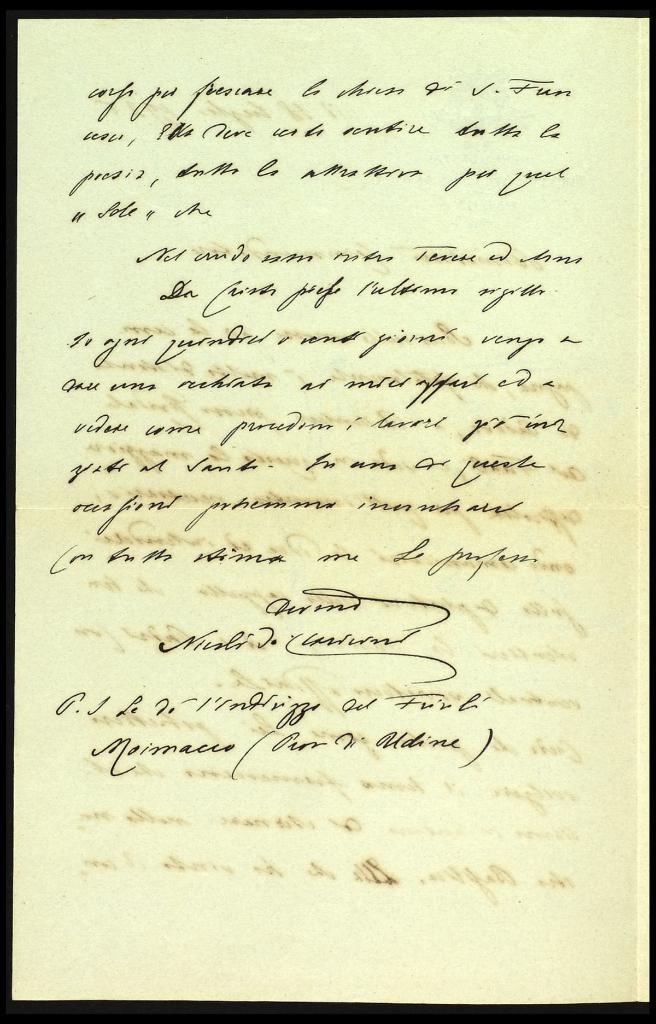 corso per frescare la chiesa di S. Fran
cesco, Ella deve certo sentire tutta la
poesia, tutta la attrattiva per quel
" Sole " che
Nel crudo sasso intra Tevere ed Arno
Da Cristo prese l'ultimo sigillo
Io ogni quindici o venti giorni vengo a
dare una occhiata ai miei affari ed a
vedere come procedono i lavori già iniz
ziati al Santo. In una di queste
occasioni potremmo incontrarci
Con tutta stima me Le professo
Devmo
P. S Le dò l'indirizzo del Friuli
Moimacco (Prov di Udine)